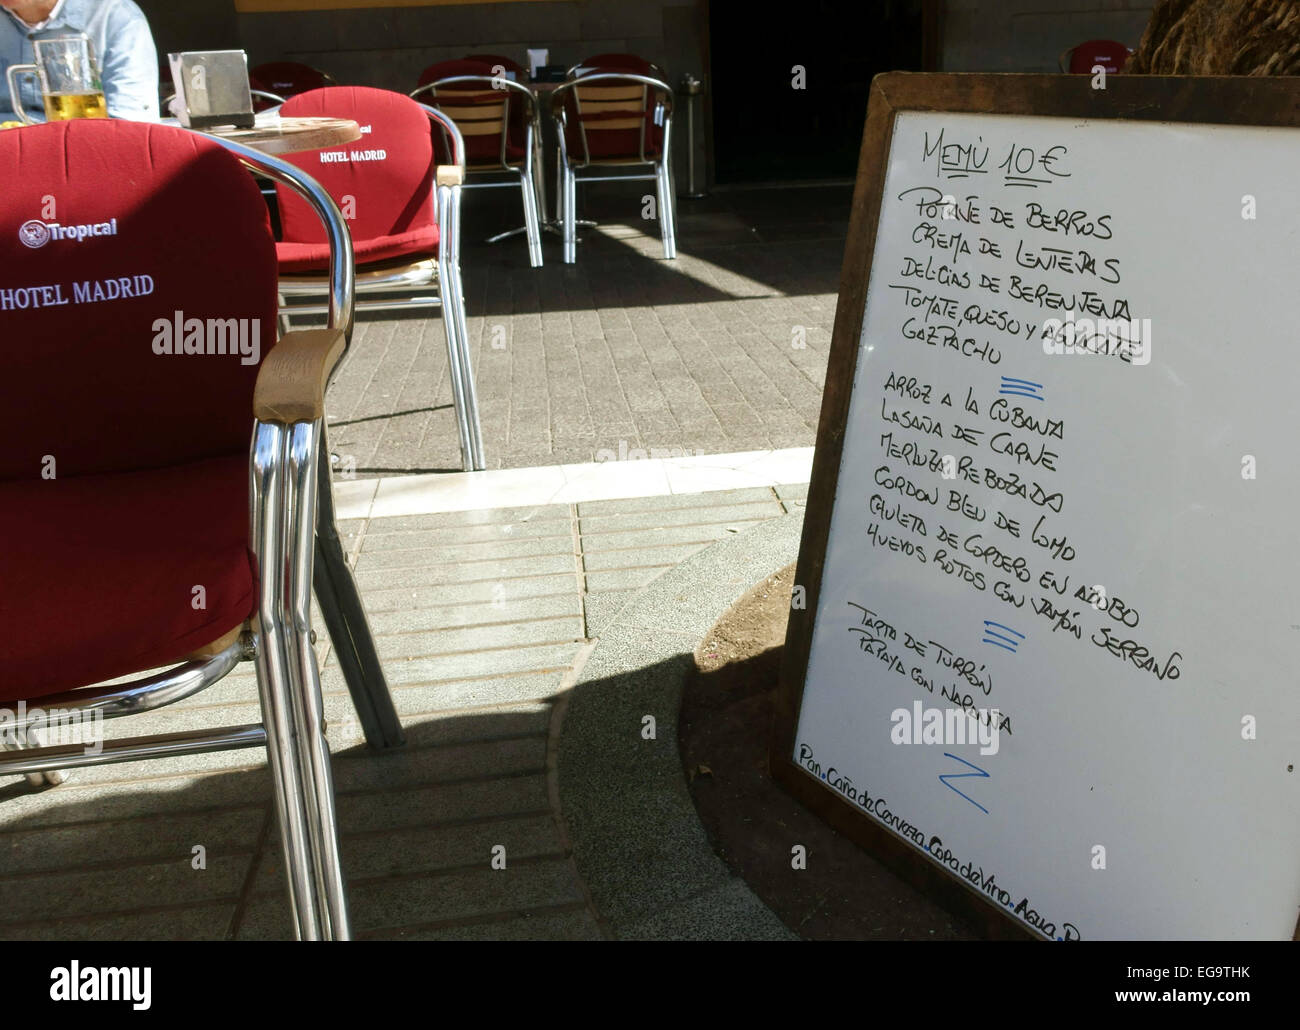 Tropical
HOTEL MADRID
Tropical
HOTEL MADRID
MENÙ 10€
POTAJE DE BERROS
CREMA DE LENTEJAS
DELICIAS DE BERENJENA
TOMATE, QUESO Y AGUACATE
GAZPACHU
ARROZ A LA CUBANA
LASAÑA DE CARNE
MERLUZA REBOZADA
CORDON BLEU DE LOMO
CHULETA DE CORDERO EN ADOBO
HUEVOS ROTOS CON JAMÓN SERRANO
TARTA DE TURRÓN
PAPAYA CON NARANJA
Pan. Caña de Cerveza. Copa de Vino. Agua. P
alamy stock photo
alamy stock photo
alamy stock photo
alamy stock photo
alamy
EG9THK
www.alamy.com